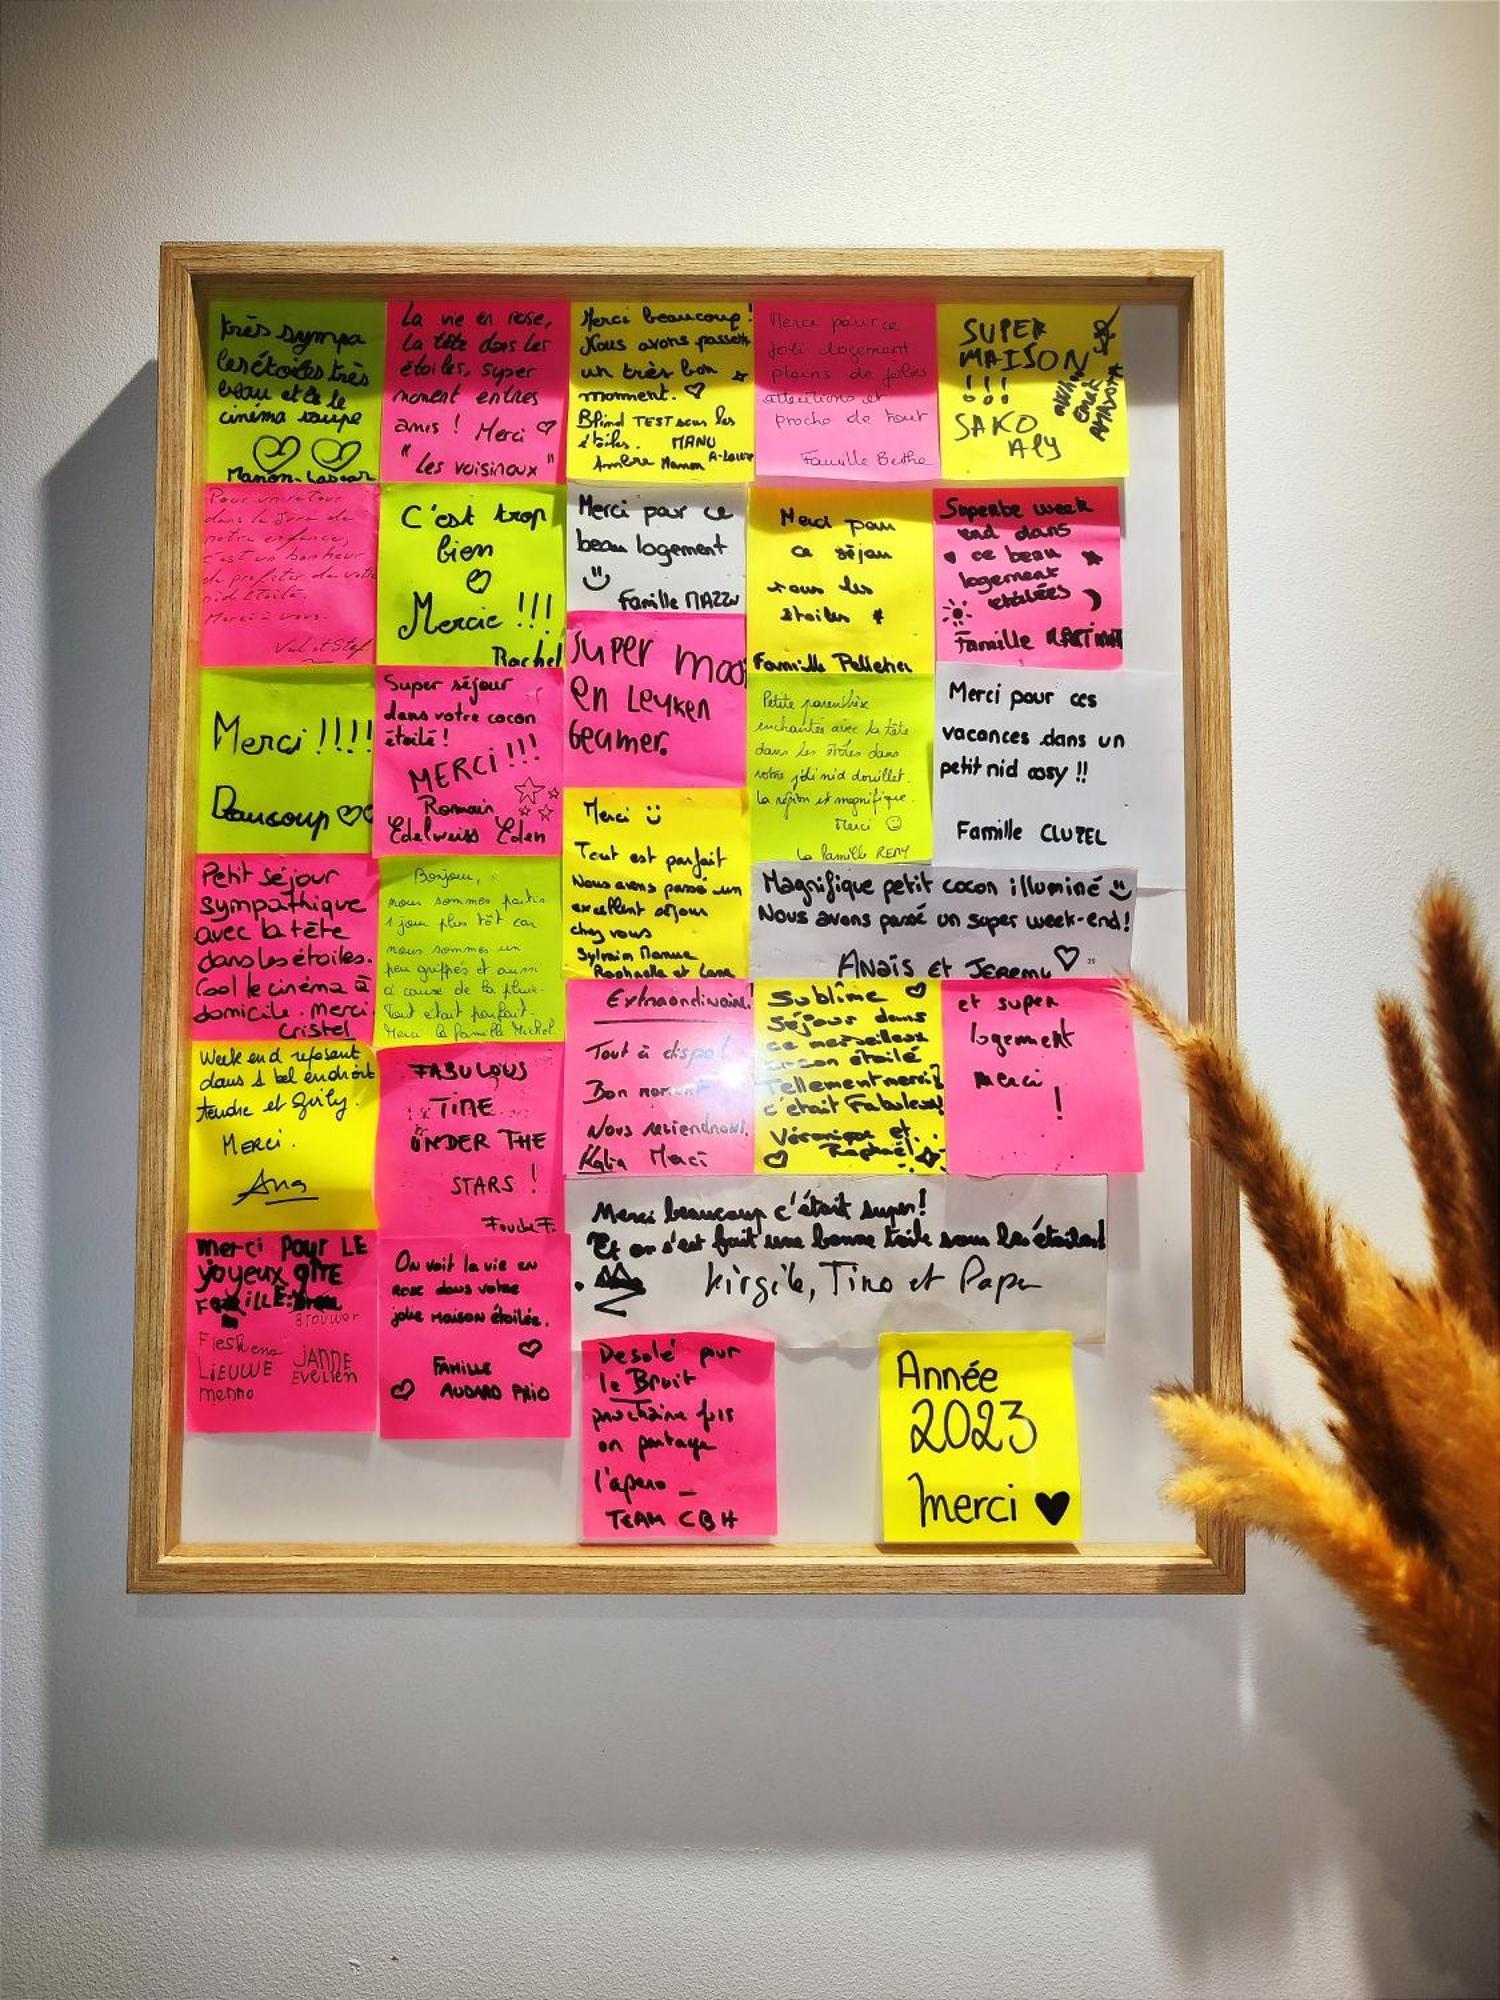 très sympa
les étoiles très
beau et le
cinéma
Manon
La vie en rose,
la tête dans les
étoiles, super
moment entres
amis ! Merci ♡
"Les voisinoux"
Merci beaucoup!
Nous avons
un très bon
moment. ♡
Blind TEST sous les
étoiles. MANU
Ambre Manon
Merci pour ce
joli logement
pleins de jolies
attentions et
proche de tout
Famille Berthe
SUPER
MAISON
!!!
SAKO
Aly
Pour un retour
dans le Jura de
notre enfance,
c'est un bonheur
de profiter de votre
nid étoilé.
Merci à vous.
Val et Stef
C'est trop
bien
♡
Mercie !!!
Rachel
Merci pour ce
beau logement
Famille MAZZU
Merci pour
ce séjour
sous les
étoiles
Famille Pelletier
Superbe week
end dans
ce beau
logement
étoilées
Famille
Merci !!!!
Beaucoup ♡♡
Super séjour
dans votre cocon
étoilé !
MERCI !!!
Romain
Edelweiss Eden
Super mooi
en Leuken
Geumer.
Petite parenthèse
enchantée avec la tête
dans les étoiles dans
votre joli nid douillet.
La région est magnifique.
Merci ☺
La famille REMY
Merci pour ces
vacances dans un
petit nid cosy !!
Famille CLUZEL
Petit séjour
sympathique
avec la tête
dans les étoiles.
Cool le cinéma à
domicile. merci
Cristel
Bonjour,
nous sommes partis
1 jour plus tôt car
nous sommes un
peu grippés et aussi
à cause de la pluie.
Tout etait parfait.
Merci la famille Michel
Merci
Tout est parfait
Nous avons passé un
excellent séjour
chez vous
Sylvain
Raphaelle et
Magnifique petit cocon illuminé
Nous avons passé un super week-end!
Anaïs et Jeremy ♡
Week end reposant
dans 1 bel endroit
tendre et Girly.
Merci.
Ana
FABULOUS
TIME
UNDER THE
STARS !
Extraordinaire!
Tout à dispo!
Bon moment
Nous reviendrons.
Katia Merci
Sublime ♡
séjour dans
ce merveilleux
cocon étoilé
Tellement merci!
c'était Fabuleux!
Véronique et
Raphaël
et super
logement
merci
!
merci pour LE
joyeux gîTE
FAMILLE
Brouwer
LIEUWE JANNE
Evelien
menno
On voit la vie en
rose dans votre
jolie maison étoilée.
♡
FAMILLE
♡ AUDARD
Merci beaucoup c'était super!
Et on s'est fait une bonne toile sous les étoiles!
Virgile, Tino et Papa
Desolé pour
le Bruit
prochaine fois
on partage
l'apero _
TEAM CBH
Année
2023
Merci ♥